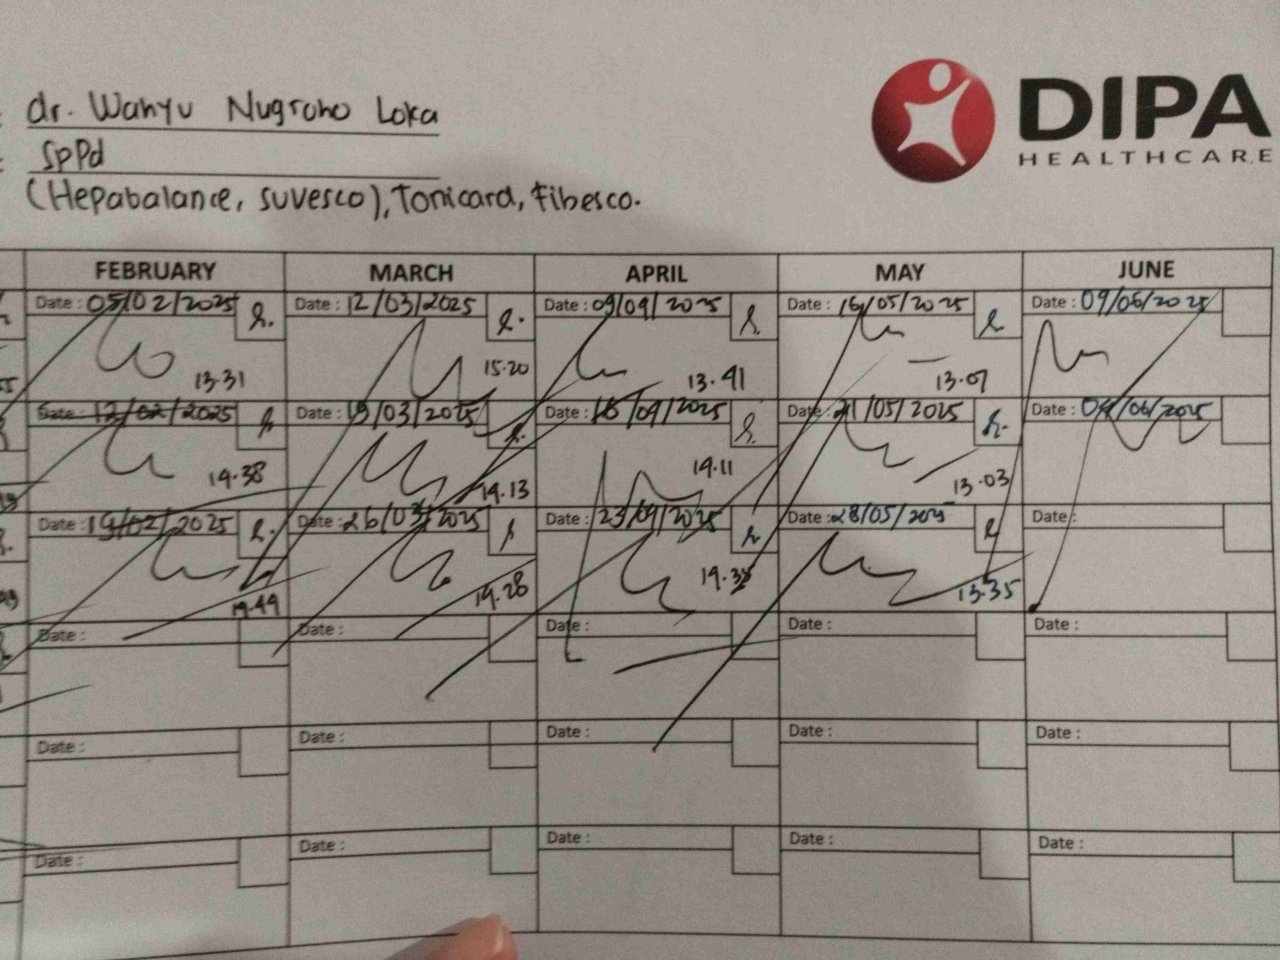 dr. Wahyu Nugroho Loka
SpPd
(Hepabalance, suvesco), Tonicard, Fibesco.
DIPA
HEALTHCARE
FEBRUARY MARCH APRIL MAY JUNE
Date : 05/02/2025 Date : 12/03/2025 Date : 09/04/2025 Date : 16/05/2025 Date : 09/06/2025
13.31 15.20 13.41 13.07
Date : 12/02/2025 Date : 19/03/2025 Date : 16/04/2025 Date : 21/05/2025 Date : 04/06/2025
14.38 14.13 14.11 13.03
Date : 19/02/2025 Date : 26/03/2025 Date : 23/04/2025 Date : 28/05/2025 Date :
14.44 14.28 14.35 13.35
Date : Date : Date : Date : Date :
Date : Date : Date : Date : Date :
Date : Date : Date : Date : Date :